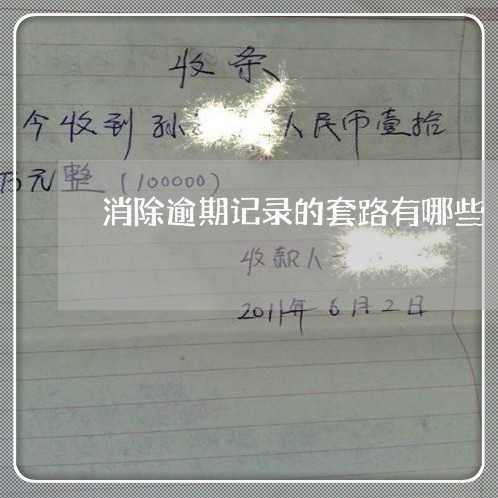 收条
今收到孙人民币壹拾
万元整(100000)
消除逾期记录的套路有哪些
收款人
2011年6月2日